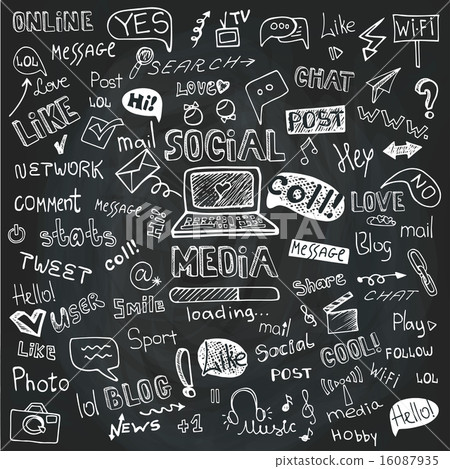 ONLINE
YES
TV
Like
Wi-Fi
MESSAGE
LOL
SEARCH
Love
Post
LOVE
CHAT
LOL
Hi!
POST
www.
LiKE
mail
SOCIAL
Hey
NETWORK
NO
COMMENT
MESSAGE
Hi!
COll!
LOVE
stats
coll!
MEDIA
MESSAGE
Blog
mail
TWEET
@
Hello!
USER
Smile
loading...
Share
CHAT
Sport
mail
Play
Like
Like
Social
COOL!
FOLLOW
Photo
POST
Wi-Fi
LOL
lol
BLOG
!
media
Hello!
NEWS
+1
Music
Hobby
PIXTA
pixta.jp - 16087935